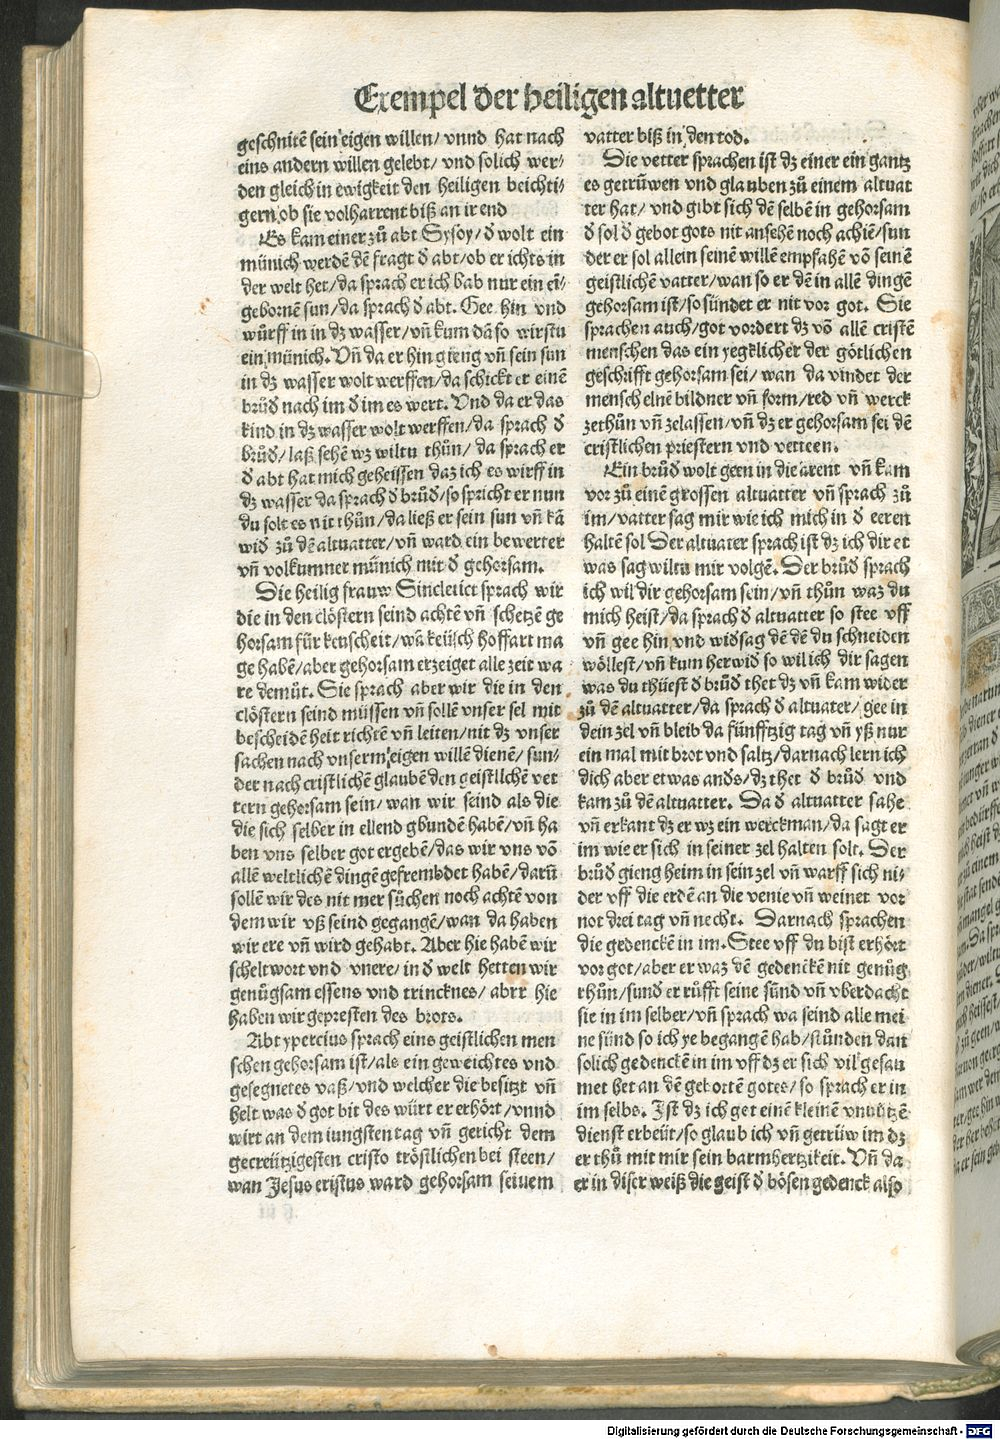 Exempel der heiligen altuetter
geschnitē sein eigen willen/ vnnd hat nach
eins andern willen gelebt/ vnd solich wer⸗
den gleich in ewigkeit den heiligen beichti⸗
gern/ob sie volharrent biß an ir end
Es kam einer zů abt Sysoy/ đ wolt ein
münich werdē dē fragt đ abt/ob er ichts in
der welt het/da sprach er ich hab nur ein ei⸗
gebornē sun/da sprach đ abt. Gee hin vnd
würff in in dz wasser/vñ kum dā so wirstu
ein münich. Vñ da er hin gieng vñ sein sun
in dz wasser wolt werffen/da schickt er einē
brůđ nach im đ im es wert. Vnd da er das
kind in dz wasser wolt werffen/da sprach đ
brůđ/laß sehē wz wiltu thůn/ da sprach er
đ abt hat mich geheissen daz ich es wirff in
dz wasser da sprach đ brůđ/so spricht er nun
du solt es nit thůn/da ließ er sein sun vñ kā
wiđ zů dē altuatter/vñ ward ein bewerter
vñ volkumner münich mit đ gehorsam.
Die heilig frauw Sincletict sprach wir
die in den clöstern seind achtē vñ schetzē ge
horsam für keuscheit/wā keüsch hoffart ma
ge habē/aber gehorsam erzeiget alle zeit wa
re demůt. Sie sprach aber wir die in den
clöstern seind müssen vñ sollē vnser sel mit
bescheidē heit richtē vñ leiten/nit dz vnser
sachen nach vnserm eigen willē dienē/ sun⸗
der nach cristlichē glaubē den geistlichē vet
tern gehorsam sein/ wan wir seind als die
die sich selber in ellend gbundē habē/vñ ha
ben vns selber got ergebē/das wir vns vō
allē weltlichē dingē gefrembdet habē/darū
sollē wir des nit mer sůchen noch achtē von
dem wir vß seind gegangē/wan da haben
wir ere vñ wird gehabt. Aber hie habē wir
scheltwort vnd vnere/ in đ welt hetten wir
genůgsam essens vnd trincknes/ abrr hie
haben wir gepresten des brots.
Abt ypercius sprach eins geistlichen men
schen gehorsam ist/als ein geweichtes vnd
gesegnetes vaß/vnd welcher die besitzt vñ
helt was đ got bit des würt er erhört/vnnd
wirt an dem iungsten tag vñ gericht dem
gecreützigesten cristo tröstlichen bei steen/
wan Jesus cristus ward gehorsam seinem
vatter biß in den tod.
Die vetter sprachen ist dz einer ein gantz
es getrüwen vnd glauben zů einem altuat
ter hat/ vnd gibt sich dē selbē in gehorsam
đ sol đ gebot gots nit ansehē noch achtē/sun
der er sol allein seinē willē empfahē vō seinē
geistlichē vatter/wan so er dē in allē dingē
gehorsam ist/so sündet er nit vor got. Sie
sprachen auch/got vordert dz vō allē cristē
menschen das ein yegklicher der götlichen
geschrifft gehorsam sei/ wan da vindet der
mensch einē bildner vñ form/red vñ werck
zethůn vñ zelassen/vñ dz er gehorsam sei dē
cristlichen priestern vnd vetteen.
Ein brůđ wolt geen in die ärent vñ kam
vor zů einē grossen altuatter vñ sprach zů
im/vatter sag mir wie ich mich in đ eeren
haltē sol Der altuater sprach ist dz ich dir et
was sag wiltu mir volgē. Der brůđ sprach
ich wil dir gehorsam sein/vñ thůn waz du
mich heist/da sprach đ altuatter so stee vff
vñ gee hin vnd widsag dē dē du schneiden
wöllest/vñ kum herwiđ so wil ich dir sagen
was du thüest đ brůđ thet dz vñ kam wider
zů dē altuatter/da sprach đ altuater/ gee in
dein zel vñ bleib da fünfftzig tag vñ yß nur
ein mal mit brot vnd saltz/darnach lern ich
dich aber etwas anđs/dz thet đ brůđ vnd
kam zů dē altuatter. Da đ altuatter sahe
vñ erkant dz er wz ein werckman/da sagt er
im wie er sich in seiner zel halten solt. Der
brůđ gieng heim in sein zel vñ warff sich ni⸗
der vff die erdē an die venie vñ weinet vor
not drei tag vñ necht. Darnach sprachen
die gedenckē in im. Stee vff du bist erhört
vor got/aber er waz dē gedenckē nit genůg
thůn/sunđ er růfft seine sünd vñ vberdacht
sie in im selber/vñ sprach wa seind alle mei
ne sünd so ich ye begangē hab/stůnden dan
solich gedenckē in im vff dz er sich vil gesau
met het an dē gebortē gotes/so sprach er in
im selbs. Ist dz ich get einē kleinē vnnützē
dienst erbeüt/so glaub ich vñ getrüw im dz
er thů mit mir sein barmhertzikeit. Vñ da
er in diser weiß die geist đ bösen gedenck also
Digitalisierung gefördert durch die Deutsche Forschungsgemeinschaft - DFG